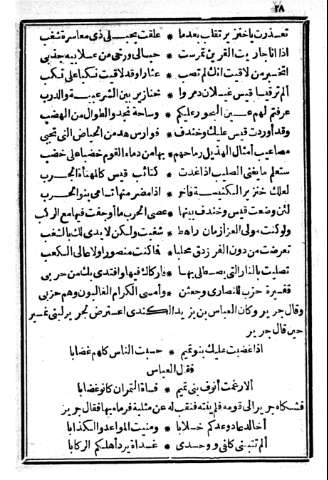 ٢٨
تعذرت ياخنزير تغلب بعدما * علقت بحبلى ذى معاسرة شغب
اذا انا جاريت القرين تمرست * حبالى ورخى من علابيه جذبى
اتخبر من لاقيت انك لم تصب * عثارا وقد لاقيت نكبا على نكب
ألم تر قيسا قيس عيلان دمروا * خنازير بين الشرعبية والدرب
عرفتم لهم عين البحور عليكم * وساحة نجد والطوال من الهضب
وقد أوردت قيس عليك وخندف * فوارس هدمن الحياض التى تجبى
مصاعيب أمثال الهذيل رماحهم * بها من دماء القوم خضبا على خضب
ستعلم ما يغنى الصليب اذا غدت * كتائب قيس كالمهنأة الجرب
لعلك خنزير الكنيسة فاخر * اذا مضر منها تسامى بنو الحرب
لئن وضعت قيس وخندف بينها * عصى الحرب ما أوجفت فيها مع الركب
ولو كنت مولى العز أزمان راهط * شغبت ولكن لا يدى لك بالشغب
تعرضت من دون الفرزدق محلبا * فما كنت منصورا ولا عالى الكعب
تصليت بالنار التى يصطلى بها * فأرداك فيها وافتدى بك من حربى
قفيرة حزب للنصارى وجعثن * وأمسى الكرام الغالبون وهم حزبى
وقال جرير وكان العباس بن يزيد الكندى اعترض لجرير لبنى نمير
حين قال جرير
اذا غضبت عليك بنو تميم * حسبت الناس كلهم غضابا
فقال العباس
ألا رغمت أنوف بنى تميم * فساة التمران كانوا غضابا
فشكاه جرير الى قومه فلم يعتبه فنقب له عن مثلبة فرماه بها فقال جرير
أخالد عاد وعدكم خلابا * ومنيت المواعد والكذابا
ألم تتبينى كلفى ووجدى * غداة يرد أهلكم الركابا